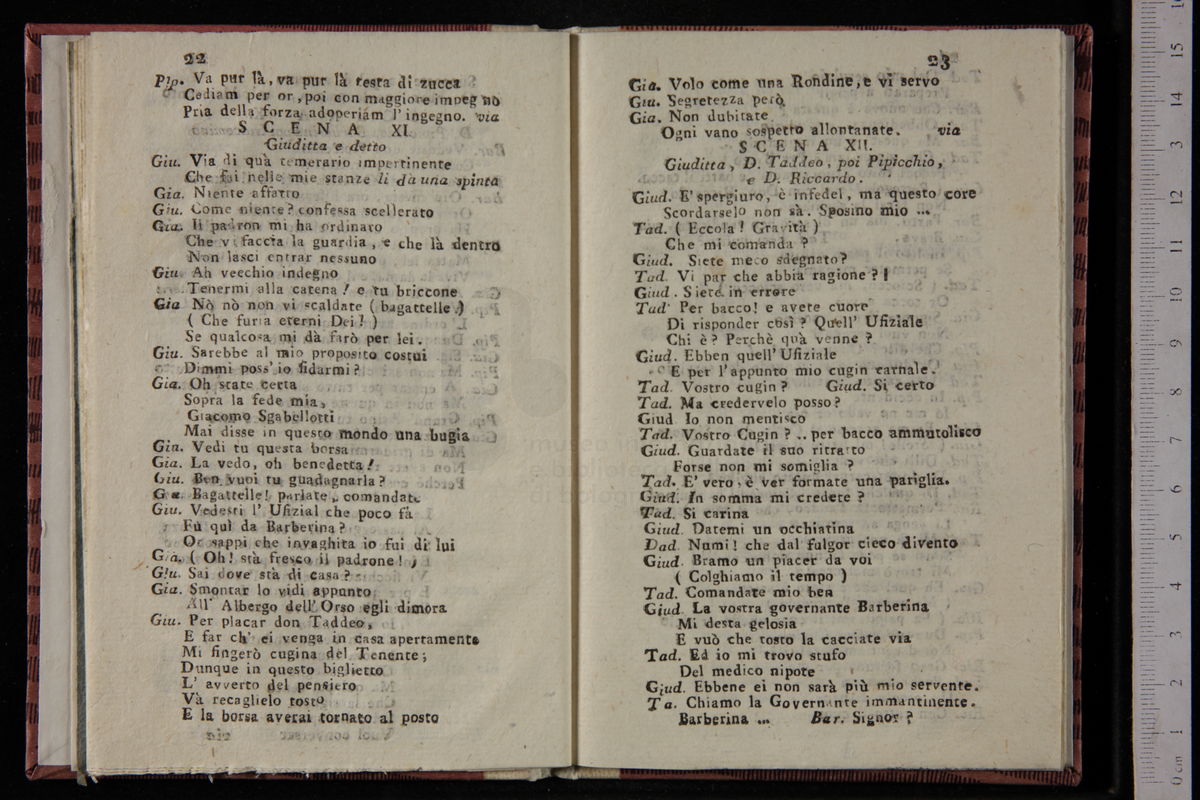 22
Pip. Va pur là, va pur là testa di zucca
Cediam per or, poi con maggiore impegno
Pria della forza adoperiam l'ingegno. via
SCENA XI.
Giuditta e detto
Giu. Via di quà temerario impertinente
Che fai nelle mie stanze li dà una spinta
Gia. Niente affatto
Giu. Come niente? confessa scellerato
Gia. Il padron mi ha ordinato
Che vi faccia la guardia, e che là dentro
Non lasci entrar nessuno
Giu. Ah vecchio indegno
Tenermi alla catena! e tu briccone
Gia Nò nò non vi scaldate ( bagattelle! )
( Che furia eterni Dei! )
Se qualcosa mi dà farò per lei.
Giu. Sarebbe al mio proposito costui
Dimmi poss' io fidarmi?
Gia. Oh state certa
Sopra la fede mia,
Giacomo Sgabellotti
Mai disse in questo mondo una bugia
Giu. Vedi tu questa borsa
Gia. La vedo, oh benedetta!
Giu. Ben vuoi tu guadagnarla?
Gia. Bagattelle! parlate, comandate
Giu. Vedesti l' Ufizial che poco fà
Fù quì da Barberina?
Or sappi che invaghita io fui di lui
Gia. ( Oh! stà fresco il padrone! )
Giu. Sai dove stà di casa?
Gia. Smontar lo vidi appunto
All' Albergo dell' Orso egli dimora
Giu. Per placar don Taddeo,
E far ch' ei venga in casa apertamente
Mi fingerò cugina del Tenente;
Dunque in questo biglietto
L' avverto del pensiero
Và recaglielo tosto
E la borsa averai tornato al posto
23
Gia. Volo come una Rondine, e vi servo
Giu. Segretezza però
Gia. Non dubitate
Ogni vano sospetto allontanate. via
SCENA XII.
Giuditta, D. Taddeo, poi Pipicchio,
e D. Riccardo.
Giud. E' spergiuro, è infedel, ma questo core
Scordarselo non sà. Sposino mio ...
Tad. ( Eccola! Gravità )
Che mi comanda?
Giud. Siete meco sdegnato?
Tad. Vi par che abbia ragione?!
Giud. Siete in errore
Tad' Per bacco! e avete cuore
Di risponder così? Quell' Ufiziale
Chi è? Perchè quà venne?
Giud. Ebben quell' Ufiziale
E per l'appunto mio cugin carnale.
Tad. Vostro cugin? Giud. Si certo
Tad. Ma credervelo posso?
Giud Io non mentisco
Tad. Vostro Cugin? .. per bacco ammutolisco
Giud. Guardate il suo ritratto
Forse non mi somiglia?
Tad. E' vero, è ver formate una pariglia.
Giud. In somma mi credete?
Tad. Si carina
Giud. Datemi un occhiatina
Dad. Numi! che dal fulgor cieco divento
Giud. Bramo un piacer da voi
( Colghiamo il tempo )
Tad. Comandate mio ben
Giud. La vostra governante Barberina
Mi desta gelosia
E vuò che tosto la cacciate via
Tad. Ed io mi trovo stufo
Del medico nipote
Giud. Ebbene ei non sarà più mio servente.
Ta. Chiamo la Governante immantinente.
Barberina ... Bar. Signor?